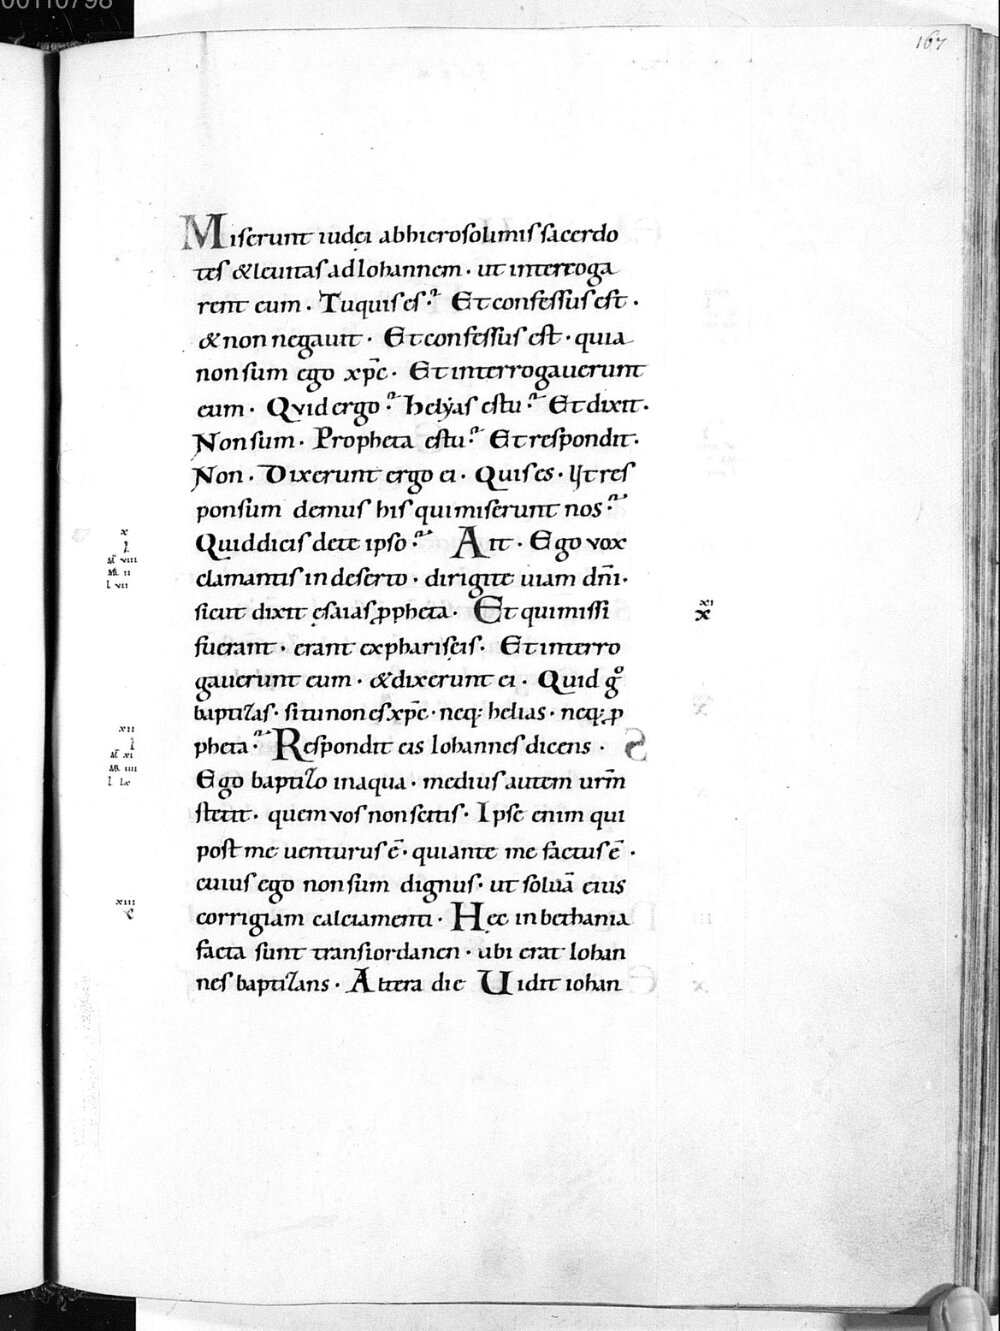 00110798
167
Miserunt iudęi abhierosolimis sacerdo
tes & leuitas ad Iohannem · ut interroga
rent eum · Tu quis es? Et confessus est ·
& non negauit · Et confessus est · quia
non sum ego xp̄c · Et interrogauerunt
eum · Quid ergo? helẏas es tu? Et dixit ·
Non sum · Propheta es tu? Et respondit ·
Non · Dixerunt ergo ei · Quis es · Ut res
ponsum demus his qui miserunt nos?
Quid dicis de te ipso? Ait · Ego vox
clamantis in deserto · dirigite uiam dn̄i ·
sicut dixit ęsaias ꝓpheta · Et qui missi
fuerant · erant ex phariseis · Et interro
gauerunt eum · & dixerunt ei · Quid gͦ
baptizas · si tu non es xp̄c · neq; helias · neq; ꝓ
pheta? Respondit eis Iohannes dicens ·
Ego baptizo in aqua · medius autem ur̄m
stetit · quem vos non scitis · Ipse enim qui
post me uenturus ē · qui ante me factus ē ·
cuius ego non sum dignus · ut soluā eius
corrigiam calciamenti · Hęc in bethania
facta sunt trans iordanen · ubi erat Iohan
nes baptizans · Altera die Uidit iohan
x
I
M̄ VIII
MR II
L VII
xi
x
XII
I
M̄ XI
MR IIII
L
XIII